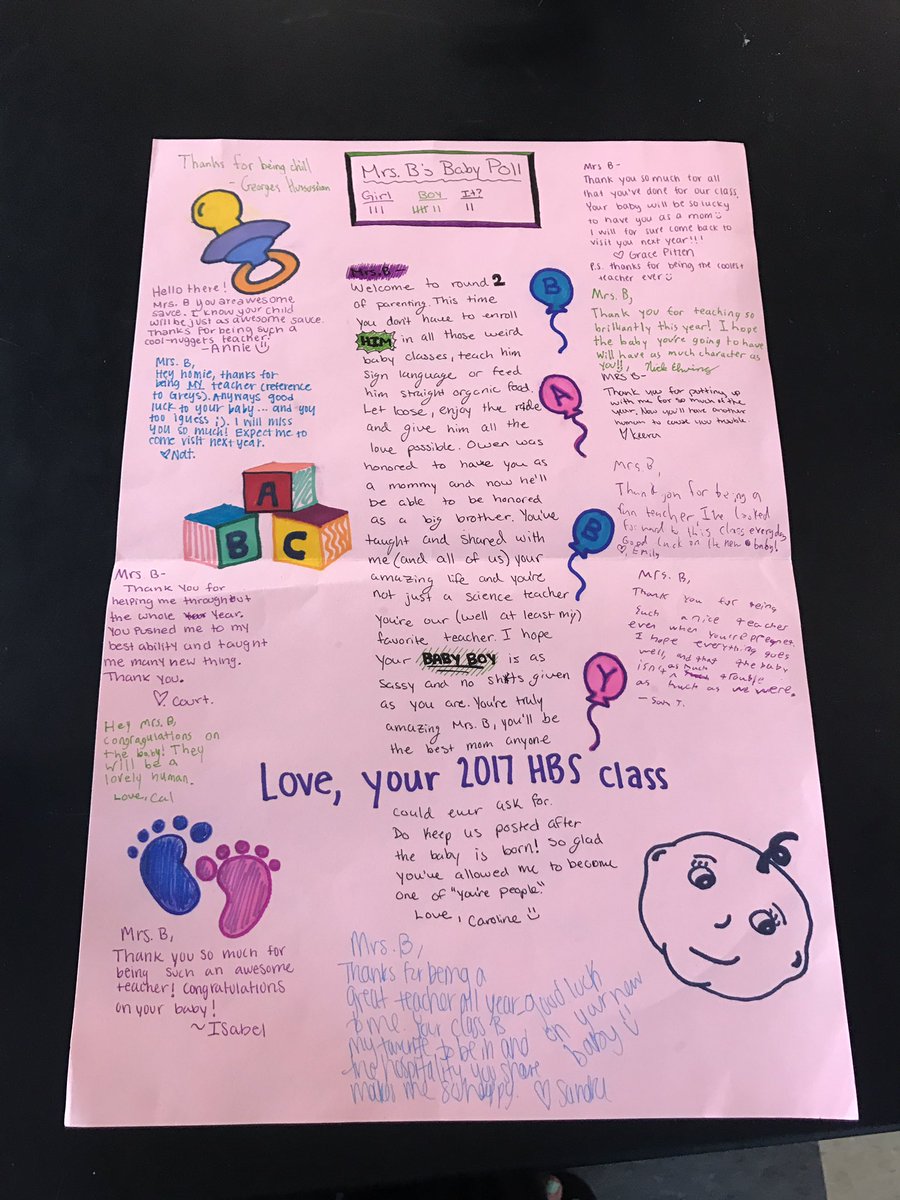 Thanks for being chill
- Georges
Mrs. B's Baby Poll
Girl Boy It?
III IIII II II
Mrs B-
Thank you so much for all
that you've done for our class.
Your baby will be so lucky
to have you as a mom
I will for sure come back to
visit you next year!!!
♡ Grace Pitzen
P.S. thanks for being the coolest
teacher ever
Hello there!
Mrs. B you are awesome
sauce. I know your child
will be just as awesome sauce.
Thanks for being such a
cool-nuggets teacher!
-Annie
Mrs. B,
Hey homie, thanks for
being MY teacher (reference
to Greys). Anyways good
luck to your baby... and you
too iguess ;). I will miss
you so much! Expect me to
come visit next year.
♡Nat.
Mrs. B-
Welcome to round 2
of parenting. This time
you don't have to enroll
HIM in all those weird
baby classes, teach him
Sign language or feed
him straight organic food.
Let loose, enjoy the ride
and give him all the
love possible. Owen was
honored to have you as
a mommy and now he'll
be able to be honored
as a big brother. You've
taught and shared with
me (and all of us) your
amazing life and you're
not just a science teacher
you're our (well at least my)
favorite teacher. I hope
your BABY BOY is as
Sassy and no shits given
as you are. You're truly
amazing Mrs. B, you'll be
the best mom anyone
B
A
B
Y
Mrs. B,
Thank you for teaching so
brilliantly this year! I hope
the baby you're going to have
will have as much character as
you!!, Nick
Mrs B-
Thank you for putting up
with me for so much of the
year. Now you'll have another
human to cause you trouble
♡Keera
Mrs. B,
Thank you for being a
fun teacher. I've looked
forward to this class everyday.
Good luck on the new baby!
♡, Emily
A
B
C
Mrs B-
Thank you for
helping me throughout
the whole year.
You pushed me to my
best ability and taught
me many new thing.
Thank you.
♡ Court.
Mrs. B,
Thank you for being
such a nice teacher
even when you're pregnet
I hope everything goes
well, and that the baby
isn't as much trouble
as much as we were.
- Sam T.
Hey Mrs. B,
congragulations on
the baby! They
will be a
lovely human.
Love, Cal
Love, your 2017 HBS class
could ever ask for.
Do keep us posted after
the baby is born! So glad
you've allowed me to become
one of "you're people."
Love, Caroline
Mrs. B,
Thank you so much for
being such an awesome
teacher! Congratulations
on your baby!
~Isabel
Mrs. B,
Thanks for being a
great teacher all year
to me. Your class is
my favorite to be in and
the hospitality you share
makes me so happy.
good luck
on your new
baby
♡ Sandra